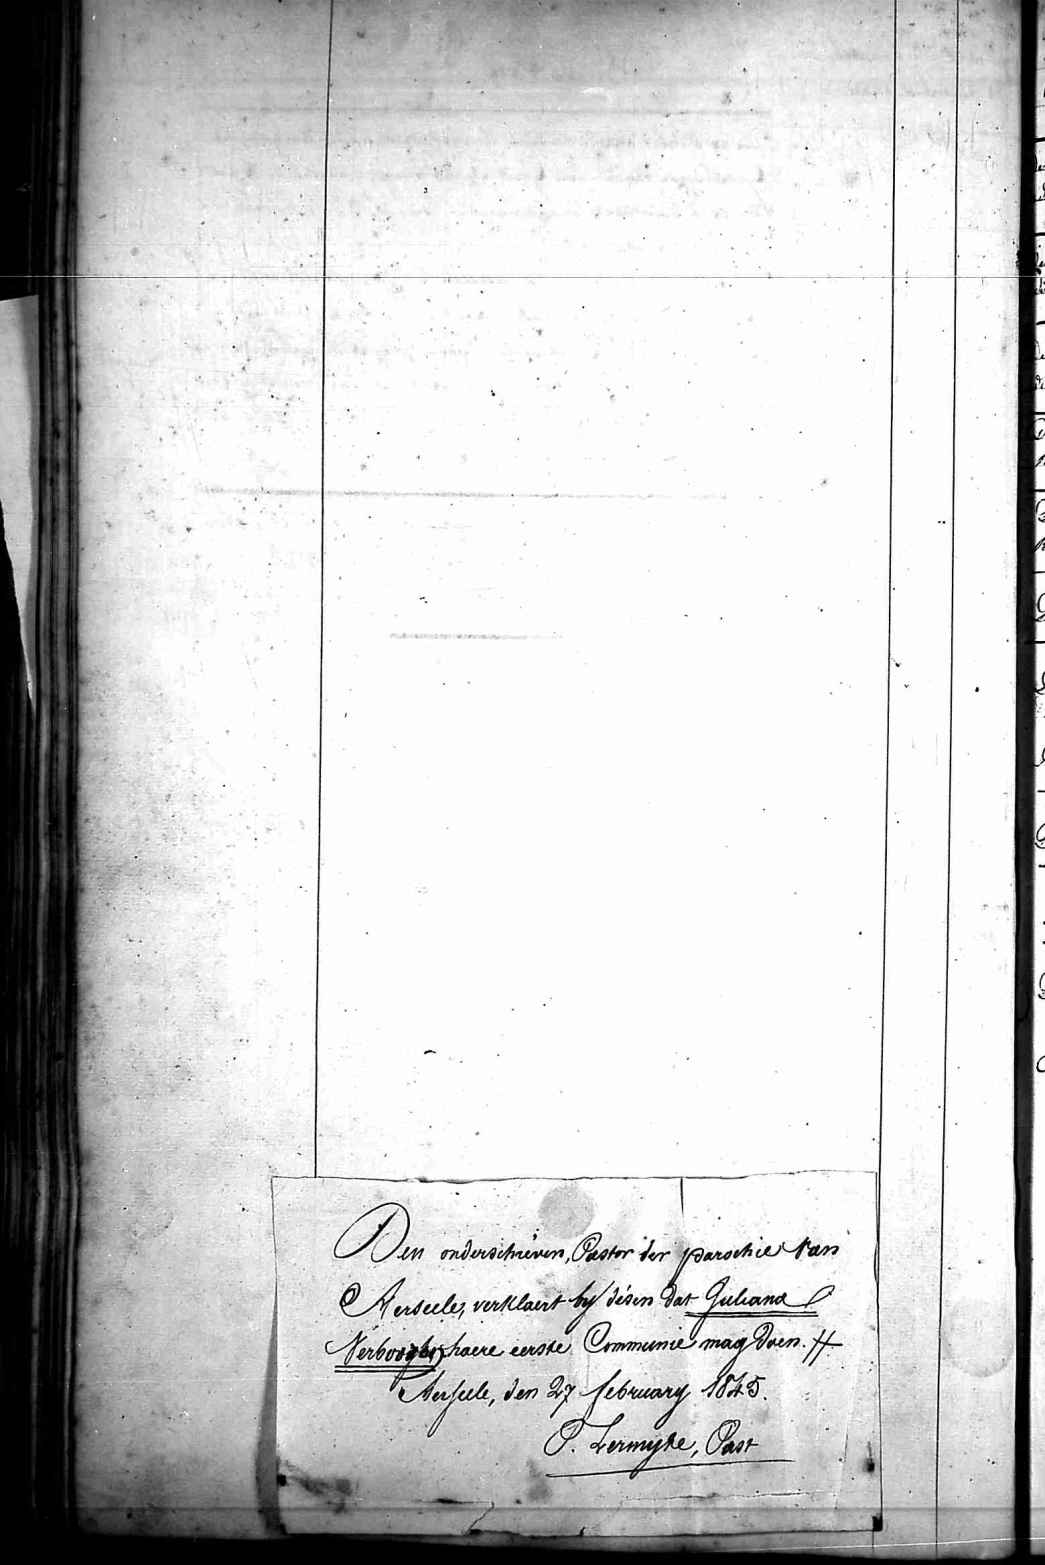 Den onderschréven, Pastor der parochie van
Aerseele, verklaert by désen dat Juliana
haere eerste Communie mag doen.
Aerseele, den 27 february 1845.
P. Lermyte, Past